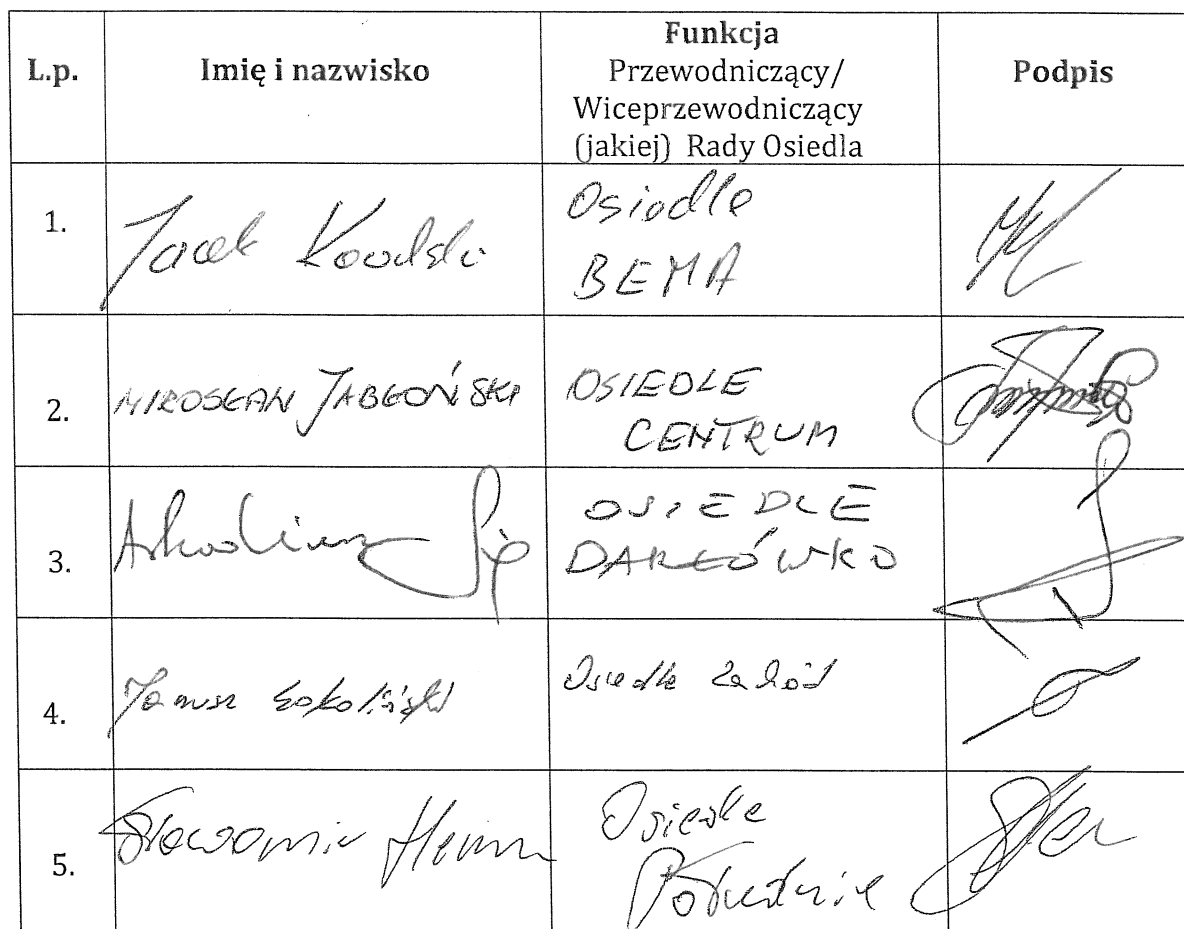 L.p.
Imię i nazwisko
Funkcja
Przewodniczący/
Wiceprzewodniczący
(jakiej) Rady Osiedla
Podpis
1.
Jacek
Osiedle
BEMA
2.
MIROSŁAW JABŁOŃSKI
OSIEDLE
CENTRUM
3.
Arkadiusz
OSIEDLE
DARŁÓWKO
4.
Janusz
Osiedle Zachód
5.
Sławomir
Osiedle
Południe